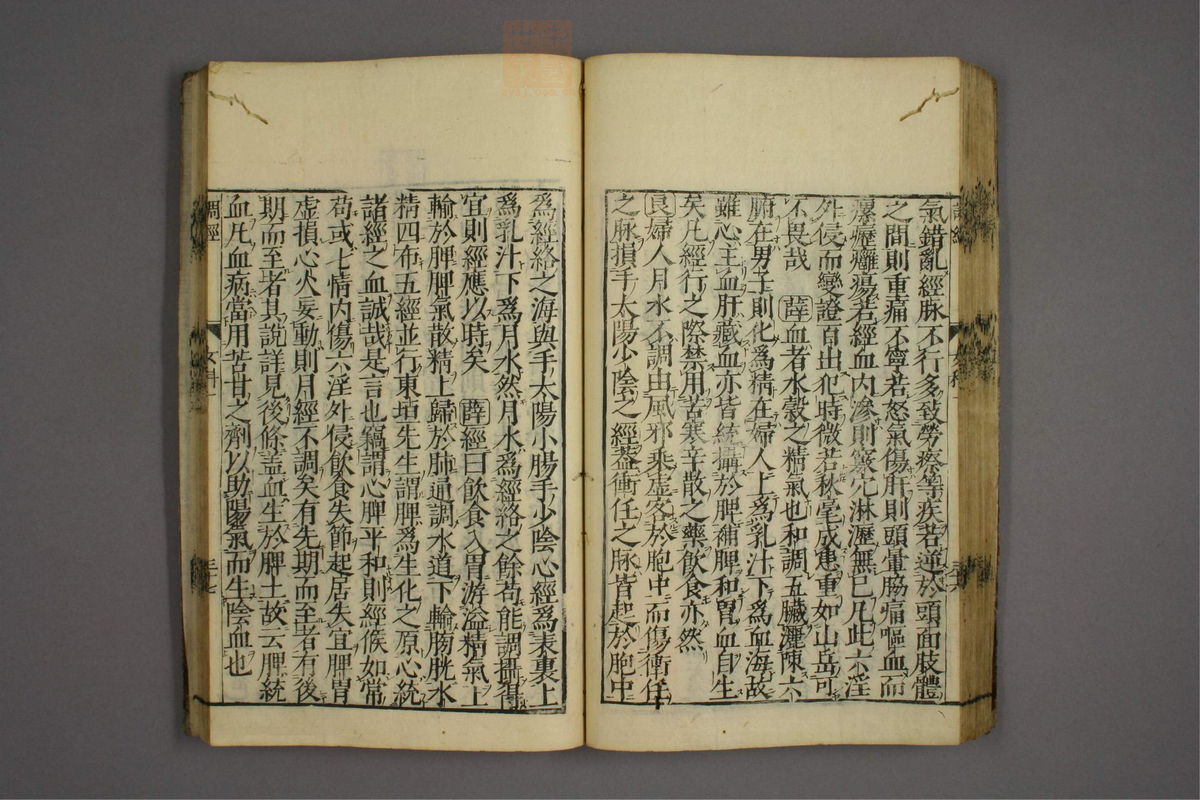 氣錯亂經脉不行多致勞瘵等疾若逆於頭面肢體
之間則重痛不寧若怒氣傷肝則頭暈脇痛嘔血而
瘰癧癰瘍若經血内滲則竅穴淋瀝無已凡此六淫
外侵而變證百出犯時微若秋毫成患重如山岳可
不畏哉 薛血者水穀之精氣也和調五臟灑陳六
腑在男子則化爲精在婦人上爲乳汁下爲血海故
雖心主血肝藏血亦皆統攝於脾補脾和胃血自生
矣凡經行之際禁用苦寒辛散之藥飲食亦然
良婦人月水不調由風邪乘虚客於胞中而傷衝任
之脉損手太陽少陰之經葢衝任之脉皆起於胞中
爲經絡之海與手太陽小腸手少陰心經爲表裏上
爲乳汁下爲月水然月水爲經絡之餘苟能調攝得
宜則經應以時矣 薛經曰飲食入胃游溢精氣上
輸於脾脾氣散精上歸於肺通調水道下輸膀胱水
精四布五經並行東垣先生謂脾爲生化之原心統
諸經之血誠哉是言也竊謂心脾平和則經候如常
苟或七情内傷六淫外侵飲食失節起居失宜脾胃
虚損心火妄動則月經不調矣有先期而至者有後
期而至者其說詳見後條蓋血生於脾土故云脾統
血凡血病當用苦甘之劑以助陽氣而生陰血也
調經
女科一
三十七